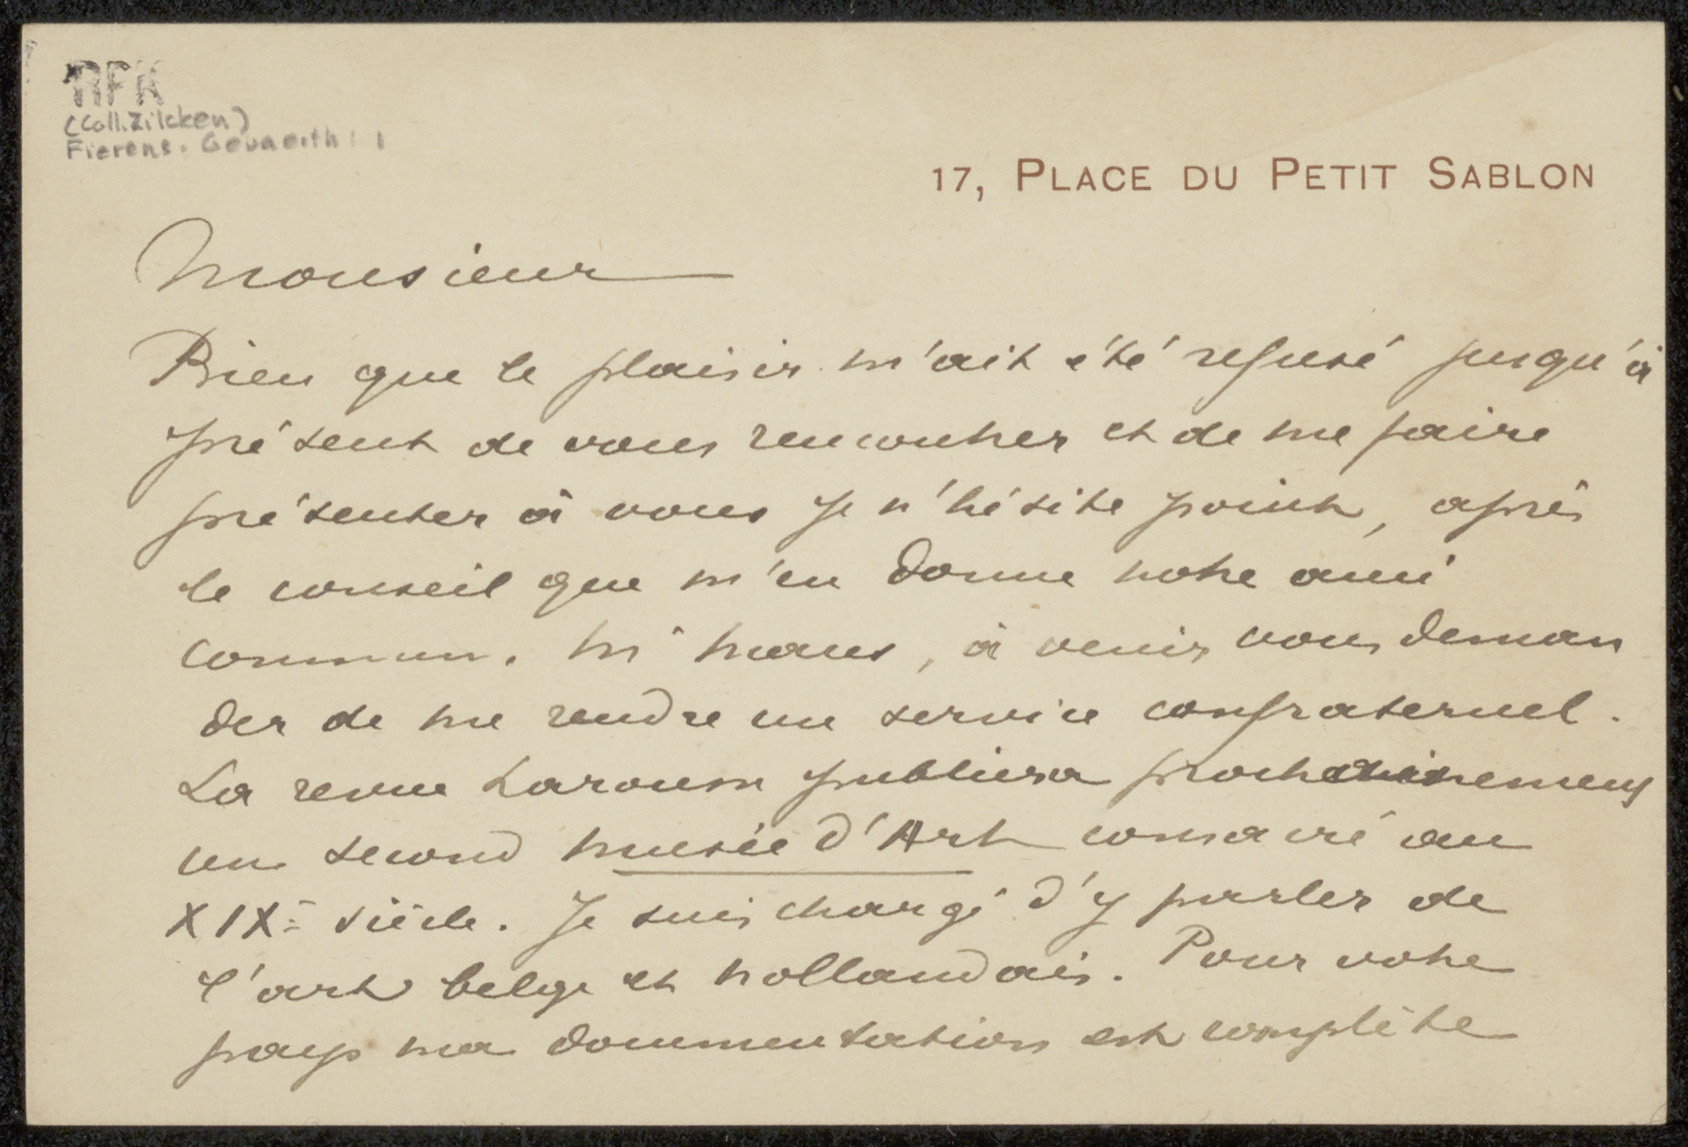 RFK
(Coll. Zilcken)
Fierens-Gevaerth
17, PLACE DU PETIT SABLON
Monsieur
Bien que le plaisir m'ait été refusé jusqu'à
présent de vous rencontrer et de me faire
présenter à vous je n'hésite point, après
le conseil que m'en donne notre ami
commun, Mr Maus, à venir vous deman
der de me rendre un service confraternel.
La revue Larousse publiera prochainement
un second musée d'Art consacré au
XIXe siècle. Je suis chargé d'y parler de
l'art belge et hollandais. Pour votre
pays ma documentation est complète